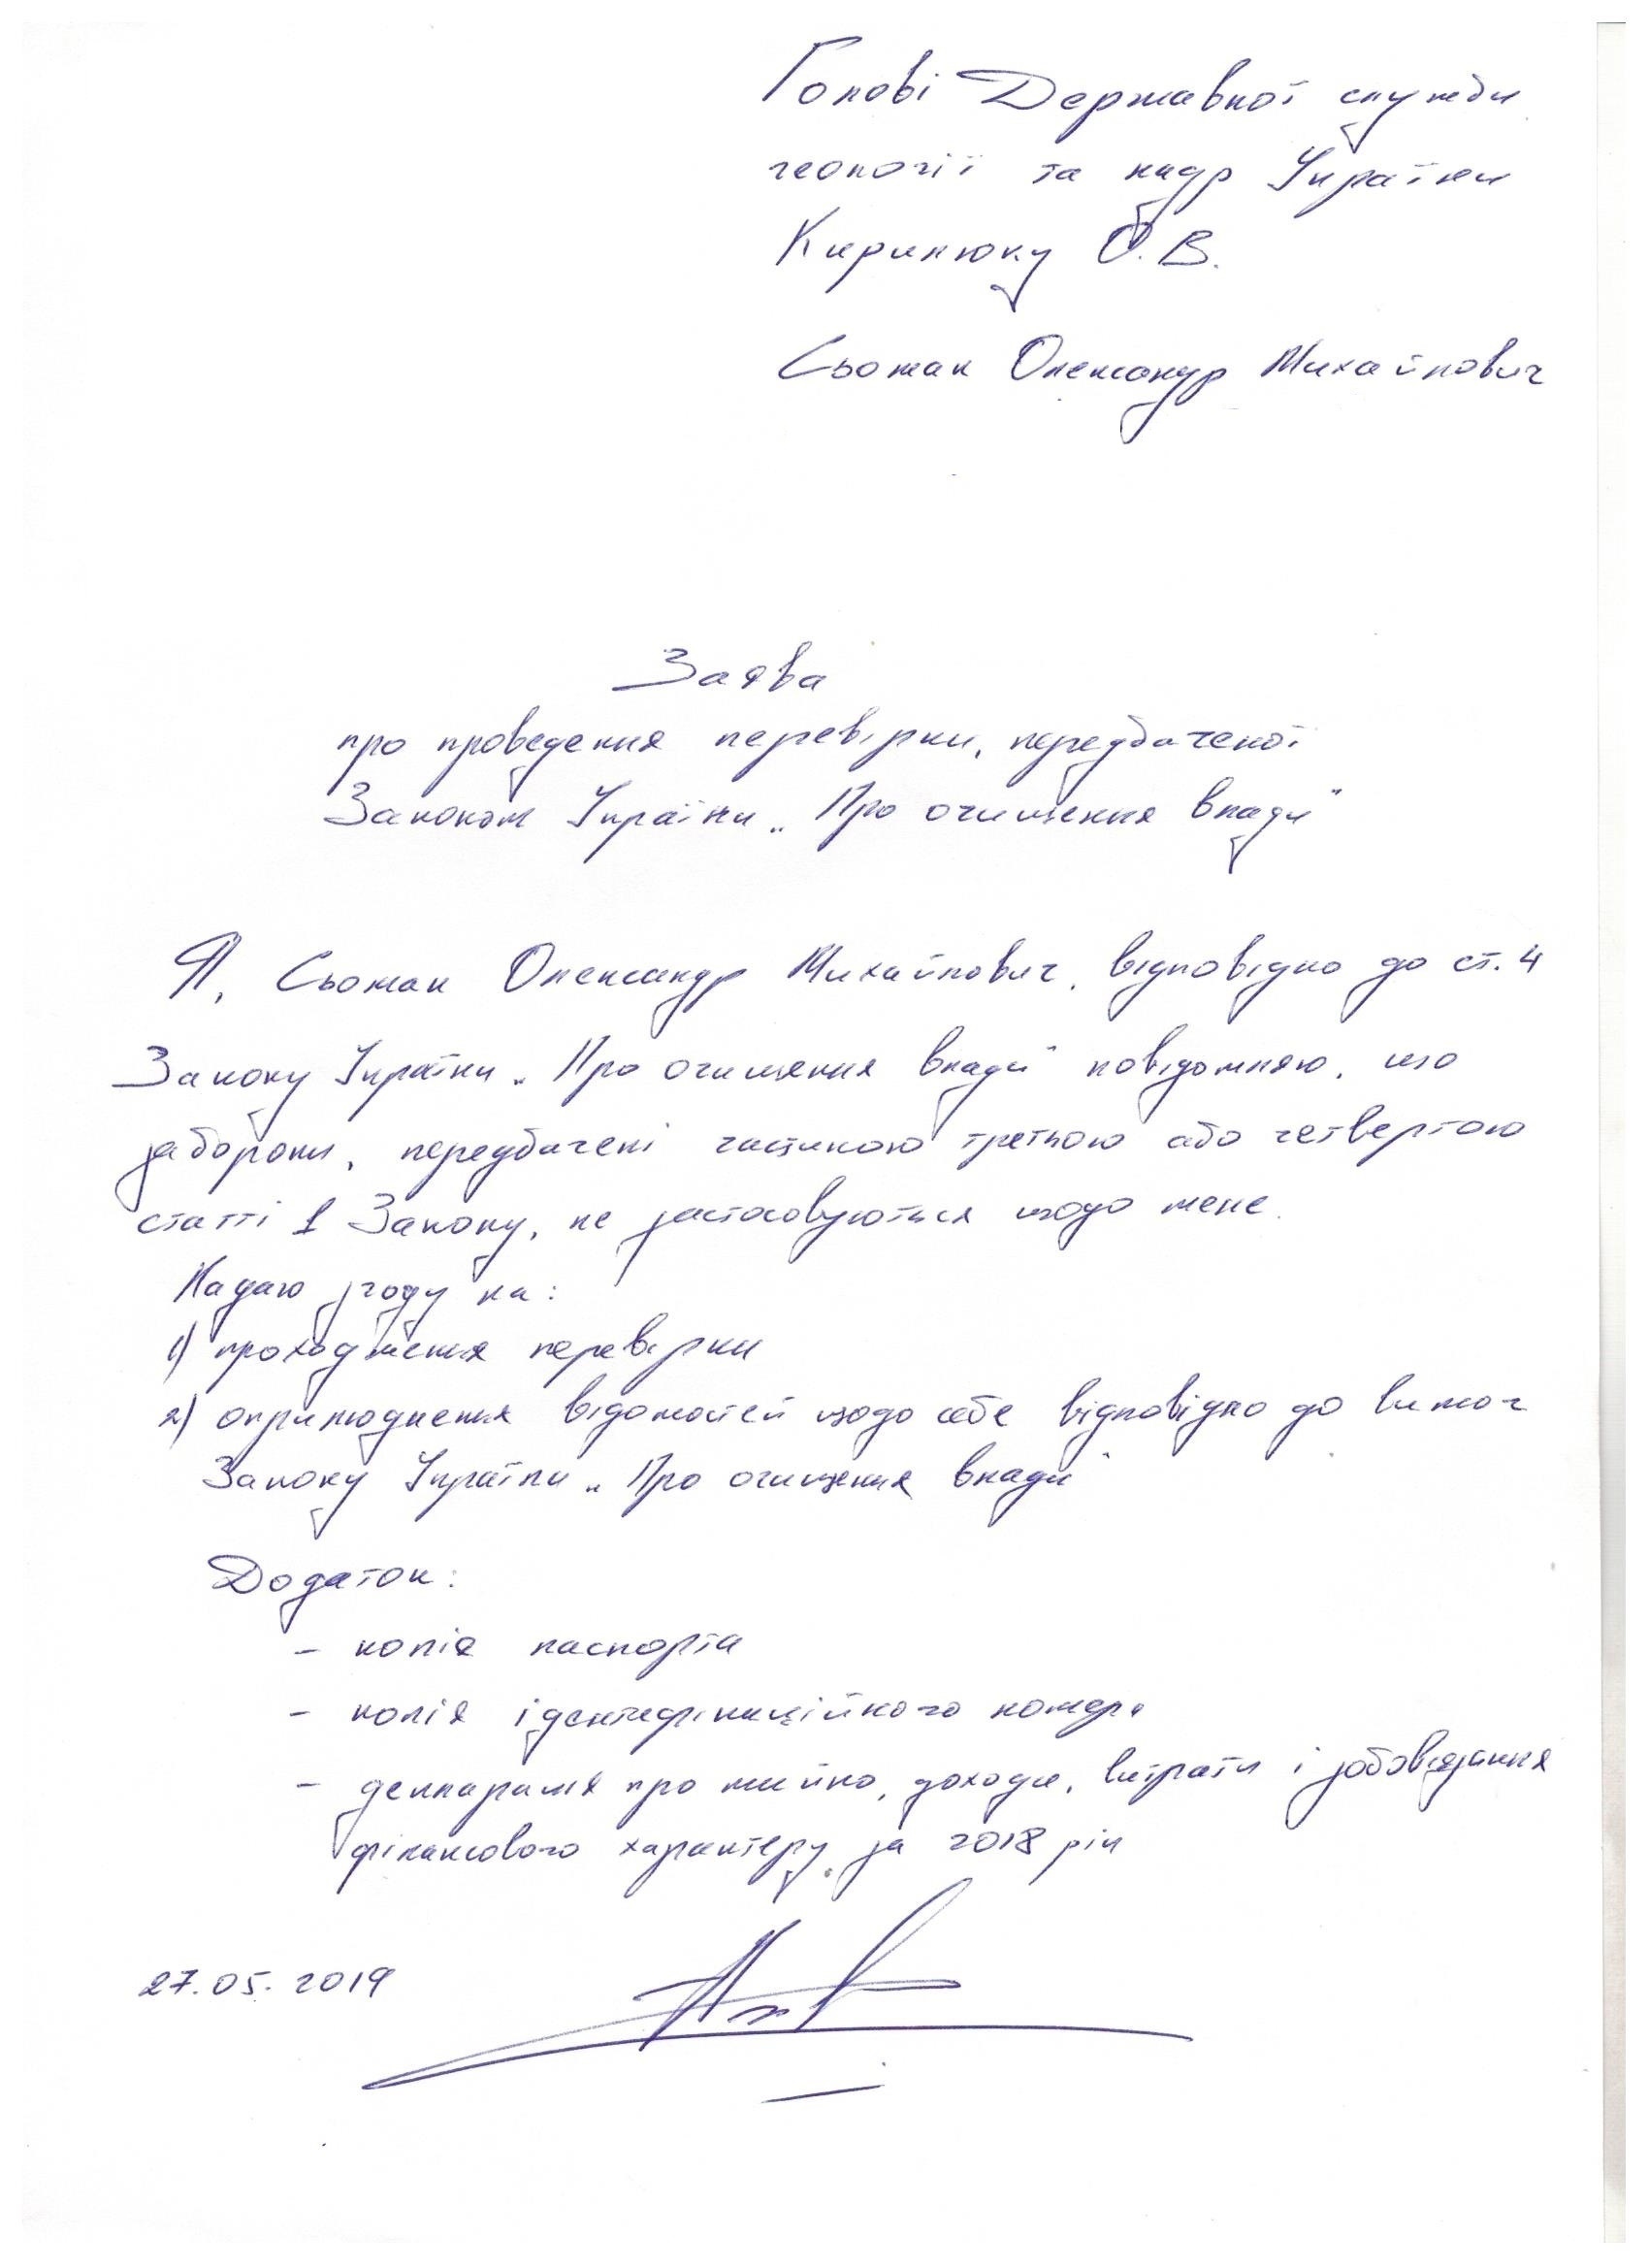 Голові Державної служби
геології та надр України
Кирилюку О.В.
Сьомак Олександр Михайлович
Заява
про проведення перевірки, передбаченої
Законом України „Про очищення влади"
Я, Сьомак Олександр Михайлович, відповідно до ст. 4
Закону України „Про очищення влади" повідомляю, що
заборони, передбачені частиною третьою або четвертою
статті 1 Закону, не застосовуються щодо мене.
Надаю згоду на:
1) проходження перевірки
2) оприлюднення відомостей щодо себе відповідно до вимог
Закону України „Про очищення влади"
Додаток:
- копія паспорта
- копія ідентифікаційного номера
- декларація про майно, доходи, витрати і зобов'язання
фінансового характеру за 2018 рік
27.05.2019